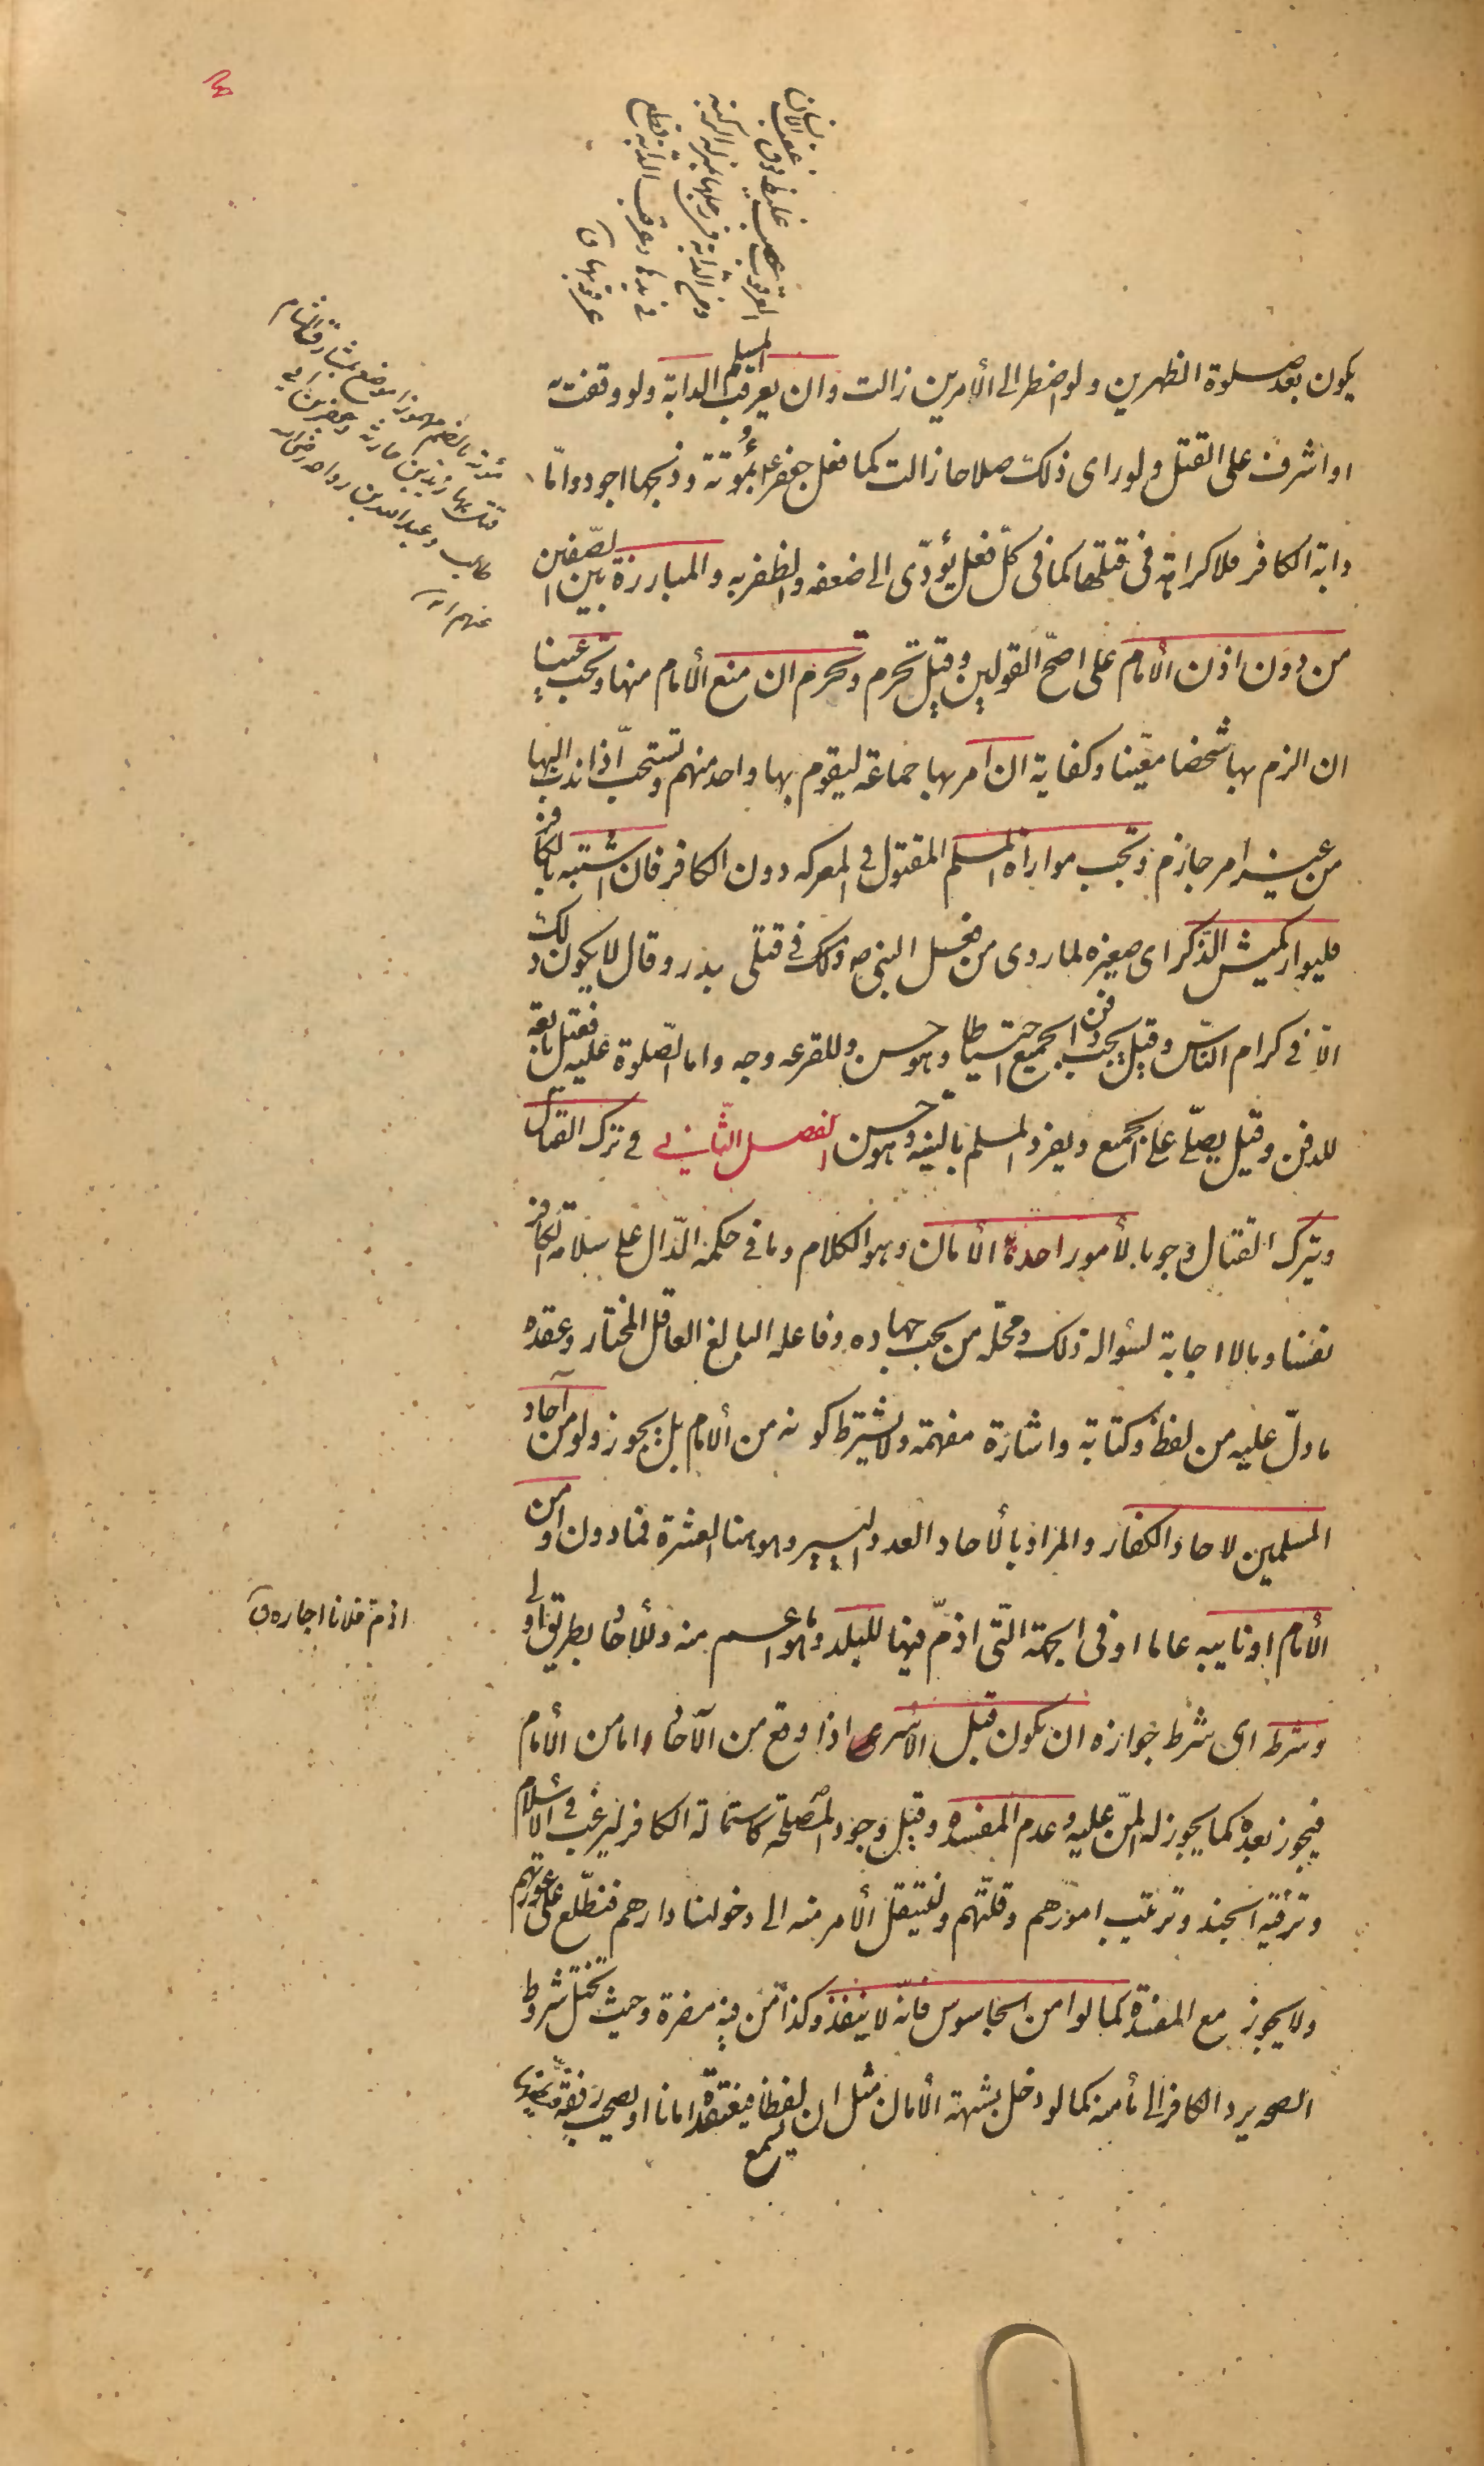 يكون بعد صلوة الظهرين ولو اضطر الى الأمرين زالت وان يعرقب المسلم الدابة ولو وقفت به
او اشرف على القتل ولو راى ذلك صلاحا زالت كما فعل جعفر ع بمؤتة وذبحها اجود واما
دابة الكافر فلا كراهة فى قتلها كما فى كل فعل يؤدّى الى ضعفه والظفر به والمبارزة بين الصّفين
من دون اذن الأمام على اصحّ القولين وقيل تحرم وتحرم ان منع الأمام منها وتجب عينا
ان الزم بها شخصا معيّنا وكفاية ان امر بها جماعة ليقوم بها واحد منهم وتستحبّ اذا ندب اليها
من غير امر جازم وتجب مواراة المسلم المقتول فى المعركه دون الكافر فان اشتبه بالكافر
فليوار كميش الذّكر اى صغيره لما روى من فعل النبى ص ذلك فى قتلى بدر وقال لا يكون ذلك
الّا فى كرام النّاس وقيل يجب دفن الجميع احتياطا وهو حسن وللقرعه وجه واما الصّلوة عليه فقيل تابعة
للدفن وقيل يصلّى على الجميع ويفرد المسلم بالنيه وهو حسن الفصل الثّانى فى ترك القتال
ويترك القتال وجوبا لأمور احدها الأمان وهو الكلام وما فى حكمه الدّال على سلامة الكافر
نفسا ومالا اجابة لسؤاله ذلك ومحلّه من يجب جهاده وفاعله البالغ العاقل المختار وعقده
ما دلّ عليه من لفظ وكتابة واشارة مفهمة ولا يشترط كونه من الأمام بل يجوز ولو من آحاد
المسلمين لاحاد الكفار والمراد بالأحاد العدد اليسير وهو هنا العشرة فما دون او من
الأمام او نايبه عاما او فى الجهة الّتى اذمّ فيها للبلد وما هو اعم منه وللأحاد بطريق اولى
وشرطه اى شرط جوازه ان يكون قبل الأسر اذا وقع من الآحاد واما من الأمام
فيجوز بعده كما يجوز له المنّ عليه وعدم المفسده وقيل وجود المصلحة كاستمالة الكافر ليرغب فى الأسلام
وترفيه الجند وترتيب امورهم وقلّتهم ولينتقل الأمر منه الى دخولنا دارهم فنطّلع على عورتهم
ولا يجوز مع المفسدة كما لو امن الجاسوس فانّه لا ينفذ وكذا من فيه مضرة وحيث تختل شروط
الصحه يرد الكافر الى مأمنه كما لو دخل بشبهة الأمان مثل ان يسمع لفظا فيعتقده امانا او يصحب رفقة فيظنها
العرقوب عصب غليظ فوق عقب الانسان
ومن الدابة فى رجلها بمنزلة الركبة
فى يدها وعرقب الدابة قطع
عرقوبها ق
مؤتة بالضم مهموزا موضع بمشارق الشام
قتل بها زيد بن حارثة وجعفر بن ابى
طالب وعبد الله بن رواحه رضى الله
عنهم
اذمّ فلانا اجاره ق